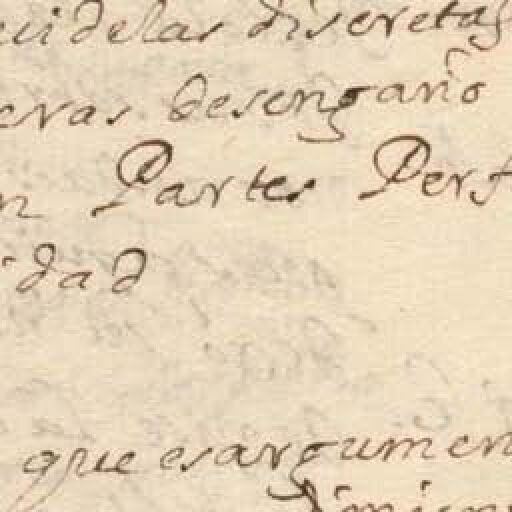 uidelas discretas
eras desengaño
n Partes Perf
idad
que es argumen